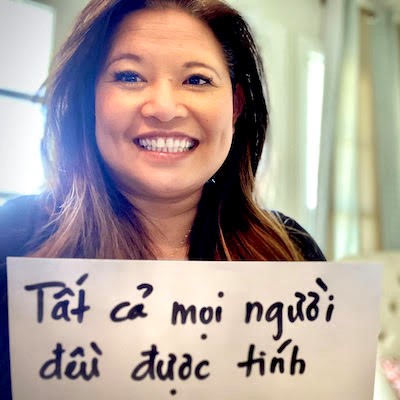 Tất cả mọi người
đều được tính